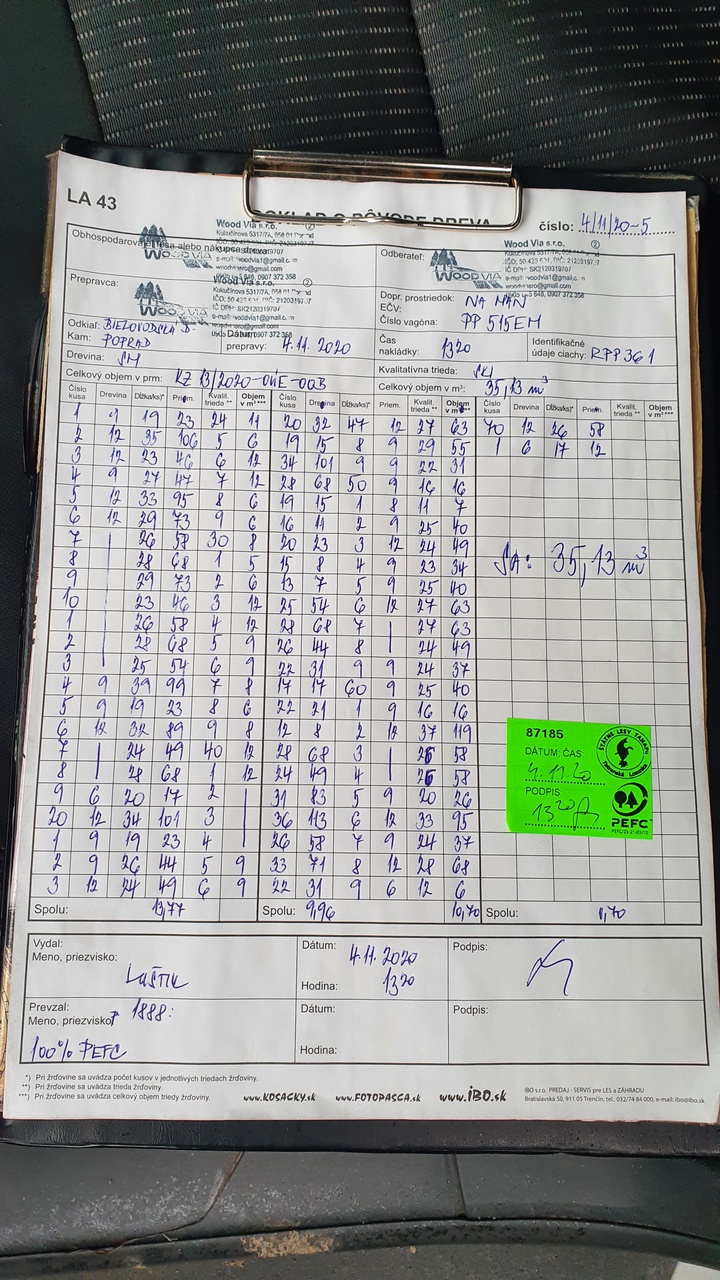 LA 43
DOKLAD O PÔVODE DREVA
číslo: 4/11/20-5
Obhospodarovateľ lesa alebo nákupca dreva:
Wood Via s.r.o.
Kukučínova 5317/7A, 058 01 Poprad
e-mail: woodvia1@gmail.com
WOOD VIA
Odberateľ:
Wood Via s.r.o.
WOOD VIA
Prepravca:
WOOD VIA
Kukučínova 5317/7A, 058 01 Poprad
IČ DPH: SK2120319707
e-mail: woodvia1@gmail.com
Dopr. prostriedok: NA MAN
EČV:
Číslo vagóna: PP 515EM
Odkiaľ: BIELOVODSKÁ D.
Kam: POPRAD
Dátum
prepravy: 4.11.2020
Čas
nakládky: 1320
Identifikačné
údaje ciachy: RPP361
Drevina: SM
Kvalitatívna trieda: SKI
Celkový objem v prm: KZ 13/2020-OHE-OOB
Celkový objem v m³: 35,13 m³
Číslo kusa Drevina Dĺžka/ks)* Priem. Kvalit. trieda ** Objem v m³ *** Číslo kusa Drevina Dĺžka/ks)* Priem. Kvalit. trieda ** Objem v m³ *** Číslo kusa Drevina Dĺžka/ks)* Priem. Kvalit. trieda ** Objem v m³ ***
1 9 19 23 24 11 20 32 47 12 27 63 70 12 26 58
2 12 35 106 5 6 19 15 8 9 29 55 1 6 17 12
3 12 23 46 6 12 34 101 9 9 22 31
4 9 27 47 7 12 28 68 50 9 16 16
5 12 33 95 8 6 19 15 1 8 11 7
6 12 29 73 9 6 16 11 2 9 25 40
7 | 26 58 30 8 20 23 3 12 24 49
8 | 28 68 1 5 15 8 4 9 23 34
SA: 35,13 m³
9 | 29 73 2 6 13 7 5 9 25 40
10 | 23 46 3 12 25 54 6 12 27 63
1 | 26 58 4 12 28 68 7 | 27 63
2 | 28 68 5 9 26 44 8 | 24 49
3 | 25 54 6 9 22 31 9 9 24 37
4 9 39 99 7 8 17 17 60 9 25 40
5 9 19 23 8 6 22 21 1 9 16 16
6 12 32 89 9 8 12 8 2 12 37 119
7 | 24 49 40 12 28 68 3 | 26 58
8 | 28 68 1 12 24 49 4 | 26 58
9 6 20 17 2 | 31 83 5 9 20 26
20 12 34 101 3 | 36 113 6 12 33 95
1 9 19 23 4 | 26 58 7 9 24 37
2 9 26 44 5 9 33 71 8 12 28 68
3 12 24 49 6 9 22 31 9 6 12 6
87185
DÁTUM: ČAS:
4.11.20
PODPIS:
1320
ŠTÁTNE LESY TANAPU
Tatranská Lomnica
PEFC
Spolu: 13,77
Spolu: 9,96 10,70
Spolu: 0,70
Vydal:
Meno, priezvisko:
LAŠTIK
Dátum: 4.11.2020
Hodina: 1320
Podpis:
Prevzal: 1888:
Meno, priezvisko:
100% PEFC
Dátum:
Hodina:
Podpis:
*) Pri žrďovine sa uvádza počet kusov v jednotlivých triedach žrďoviny.
**) Pri žrďovine sa uvádza trieda žrďoviny.
***) Pri žrďovine sa uvádza celkový objem triedy žrďoviny.
www.KOSACKY.sk www.FOTOPASCA.sk www.iBO.sk
IBO s.r.o. PREDAJ - SERVIS pre LES a ZÁHRADU
Bratislavská 50, 911 05 Trenčín, tel.: 032/74 84 000, e-mail: ibo@ibo.sk